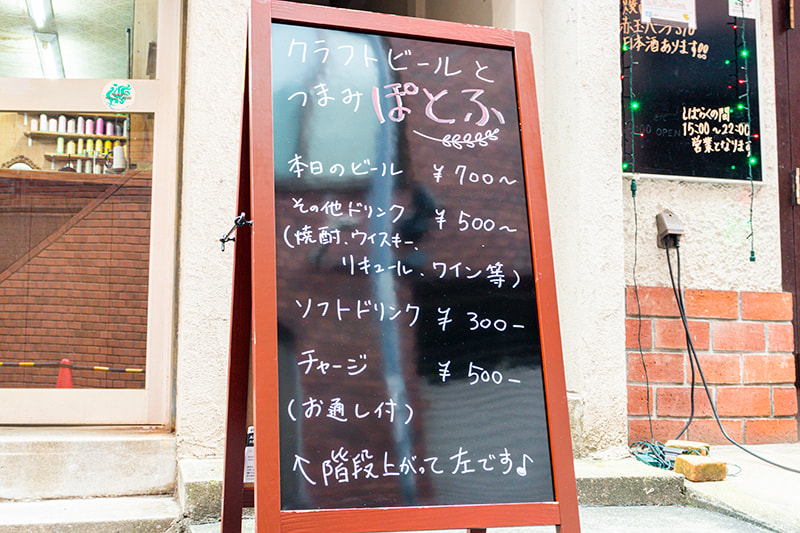 クラフトビールと
つまみ ぽとふ
本日のビール ¥700〜
その他ドリンク ¥500〜
(焼酎、ウイスキー、
リキュール、ワイン等)
ソフトドリンク ¥300-
チャージ ¥500-
(お通し付)
↖階段上がって左です♪
日本酒あります
しばらくの間
15:00〜22:00
営業となります
OPEN